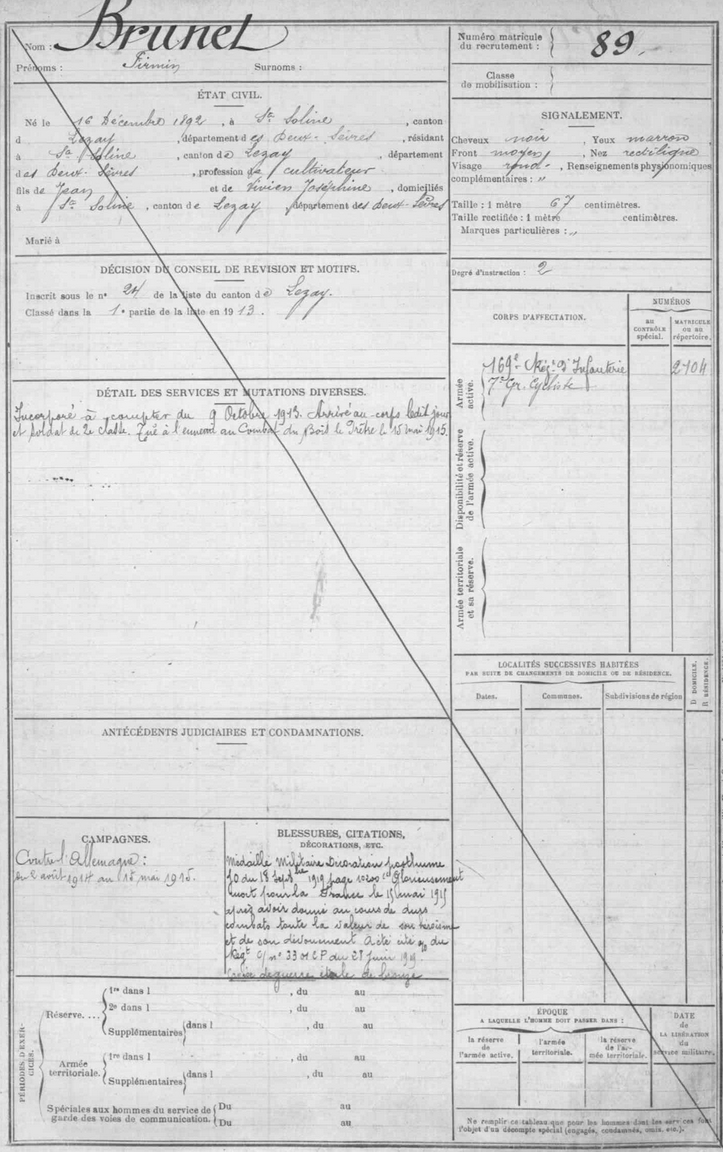 Nom : Brunet
Prénoms : Firmin Surnoms :
ÉTAT CIVIL.
Né le 16 Décembre 1892, à Ste Soline, canton
d Lezay, département des Deux-Sèvres, résidant
à Ste Soline, canton de Lezay, département
des Deux-Sèvres, profession de cultivateur
fils de Jean et de Vivien Joséphine, domiciliés
à Ste Soline, canton de Lezay, département des Deux-Sèvres
Marié à
DÉCISION DU CONSEIL DE REVISION ET MOTIFS.
Inscrit sous le n° 24 de la liste du canton de Lezay.
Classé dans la 1e partie de la liste en 1913.
DÉTAIL DES SERVICES ET MUTATIONS DIVERSES.
Incorporé à compter du 9 Octobre 1913. Arrivé au corps ledit jour
et soldat de 2e classe. Tué à l'ennemi au Combat du Bois le Prêtre le 15 mai 1915.
ANTÉCÉDENTS JUDICIAIRES ET CONDAMNATIONS.
CAMPAGNES.
Contre l'Allemagne :
du 2 août 1914 au 15 mai 1915.
BLESSURES, CITATIONS,
DÉCORATIONS, ETC.
Médaille Militaire Décoration posthume
JO du 18 Septbre 1919 page 10200 Glorieusement
mort pour la France le 15 mai 1915
après avoir donné au cours de durs
combats toute la valeur de son héroïsme
et de son dévouement a été cité du
Régt n° 33 du 28 juin 19
Croix de guerre étoile de bronze
PÉRIODES D'EXERCICES.
Réserve....
1re dans l , du au
2e dans l , du au
Supplémentaires dans l , du au
Armée territoriale.
1re dans l , du au
Supplémentaires dans l , du au
Spéciales aux hommes du service de garde des voies de communication.
Du au
Du au
Numéro matricule du recrutement : 89
Classe de mobilisation :
SIGNALEMENT.
Cheveux noir, Yeux marron,
Front moyen, Nez rectiligne
Visage rond, Renseignements physionomiques
complémentaires : "
Taille : 1 mètre 67 centimètres.
Taille rectifiée : 1 mètre centimètres.
Marques particulières : "
Degré d'instruction : 2
CORPS D'AFFECTATION.
NUMÉROS
AU CONTRÔLE spécial.
MATRICULE ou au répertoire.
Armée active.
169e Régt d'Infanterie 2104
7e Gr. Cycliste
Disponibilité et réserve de l'armée active.
Armée territoriale et sa réserve.
LOCALITÉS SUCCESSIVES HABITÉES
PAR SUITE DE CHANGEMENTS DE DOMICILE OU DE RÉSIDENCE.
Dates. Communes. Subdivisions de région
D DOMICILE.
R RÉSIDENCE.
ÉPOQUE
A LAQUELLE L'HOMME DOIT PASSER DANS :
la réserve de l'armée active.
l'armée territoriale.
la réserve de l'armée territoriale.
DATE de LA LIBÉRATION du service militaire.
Ne remplir ce tableau que pour les hommes dont les services font
l'objet d'un décompte spécial (engagés, condamnés, omis, etc.).